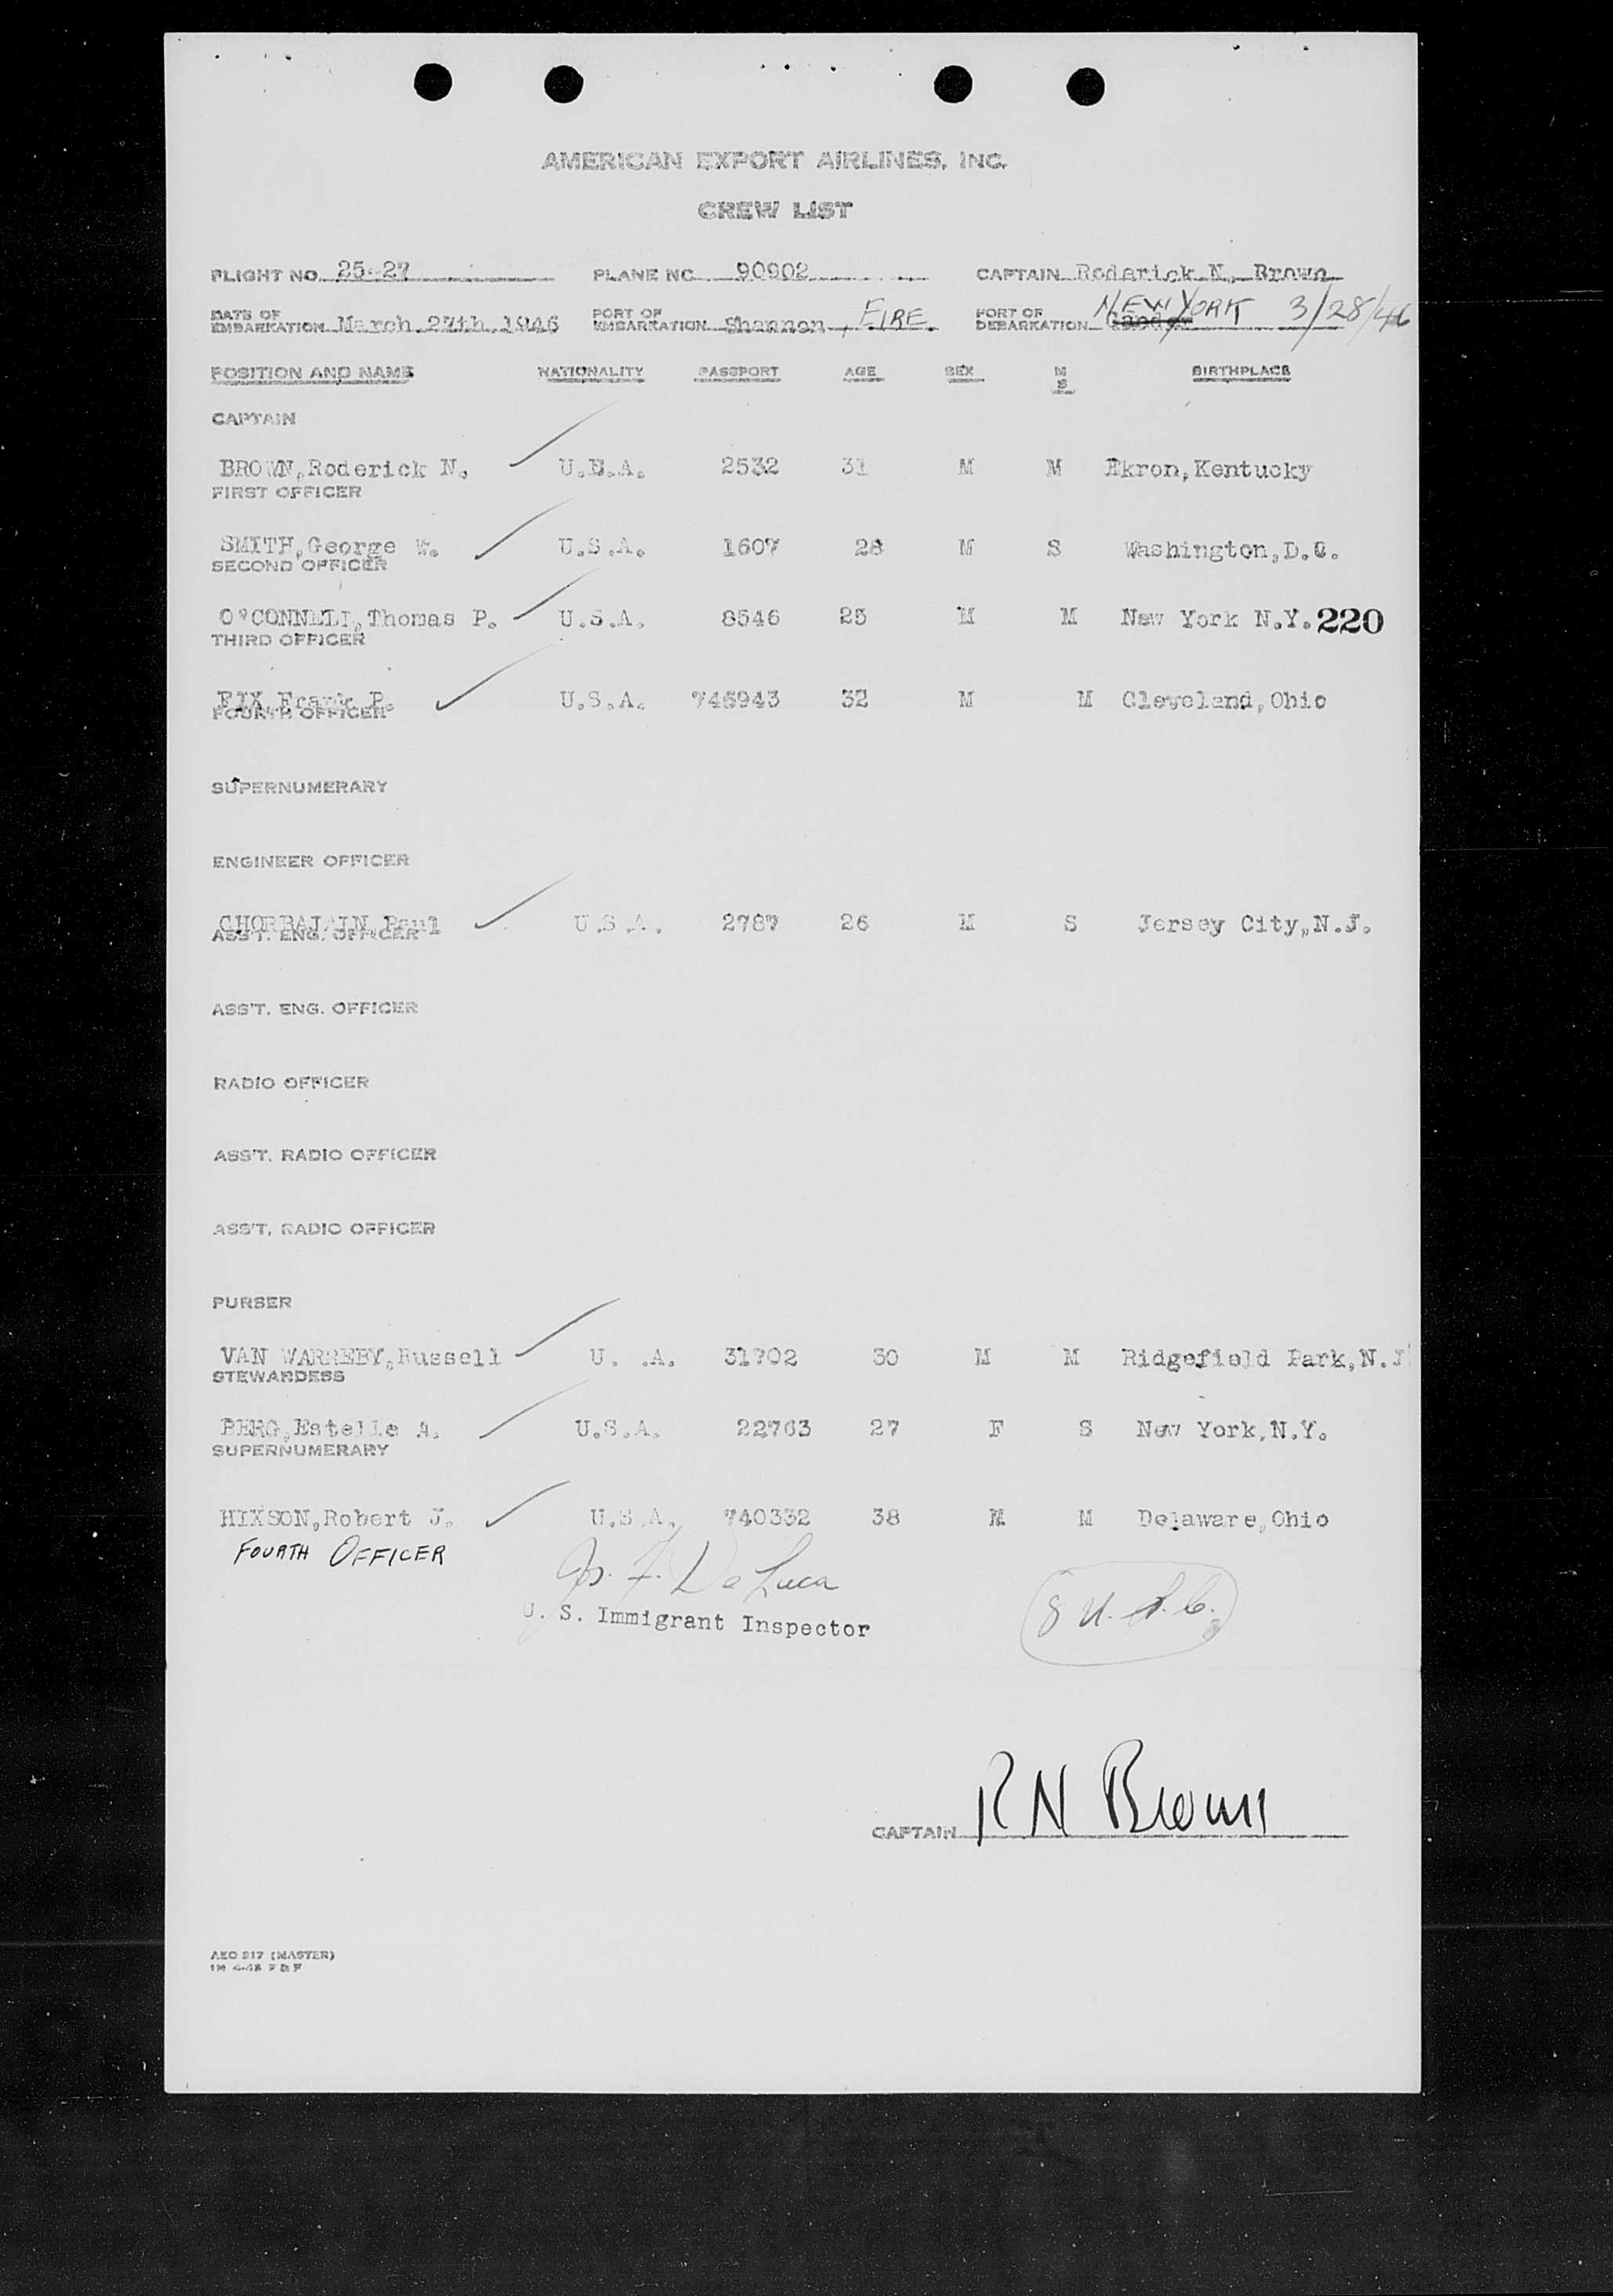 AMERICAN EXPORT AIRLINES, INC.
CREW LIST
FLIGHT NO. 25-27 PLANE NO. 90902 CAPTAIN Roderick N. Brown
DATE OF EMBARKATION March 27th 1946 PORT OF EMBARKATION Shannon, EIRE. PORT OF DEBARKATION Gander NEW YORK 3/28/46
POSITION AND NAME NATIONALITY PASSPORT AGE SEX M S BIRTHPLACE
CAPTAIN
BROWN, Roderick N. U.S.A. 2532 31 M M Ekron, Kentucky
FIRST OFFICER
SMITH, George W. U.S.A. 1607 28 M S Washington, D.C.
SECOND OFFICER
O'CONNELL, Thomas P. U.S.A. 8546 25 M M New York N.Y. 220
THIRD OFFICER
FIX, Frank P. U.S.A. 746943 32 M M Cleveland, Ohio
FOURTH OFFICER
SUPERNUMERARY
ENGINEER OFFICER
CHORBAJAIN, Paul U.S.A. 2787 26 M S Jersey City, N.J.
ASS'T. ENG. OFFICER
ASS'T. ENG. OFFICER
RADIO OFFICER
ASS'T. RADIO OFFICER
ASS'T. RADIO OFFICER
PURSER
VAN WARREBY, Russell U. .A. 31702 30 M M Ridgefield Park, N.J
STEWARDESS
BERG, Estelle A. U.S.A. 22763 27 F S New York, N.Y.
SUPERNUMERARY
HIXSON, Robert J. U.S.A. 740332 38 M M Delaware, Ohio
FOURTH OFFICER
Jos. F. De Luca
U. S. Immigrant Inspector
8 U.S.C.
CAPTAIN R N Brown
AEO 217 (MASTER)